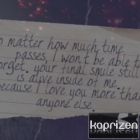 o matter how much time
passes I won't be able to
forget, your final smile still
is alive inside of me.
because I love you more than
anyone else.
koprizen